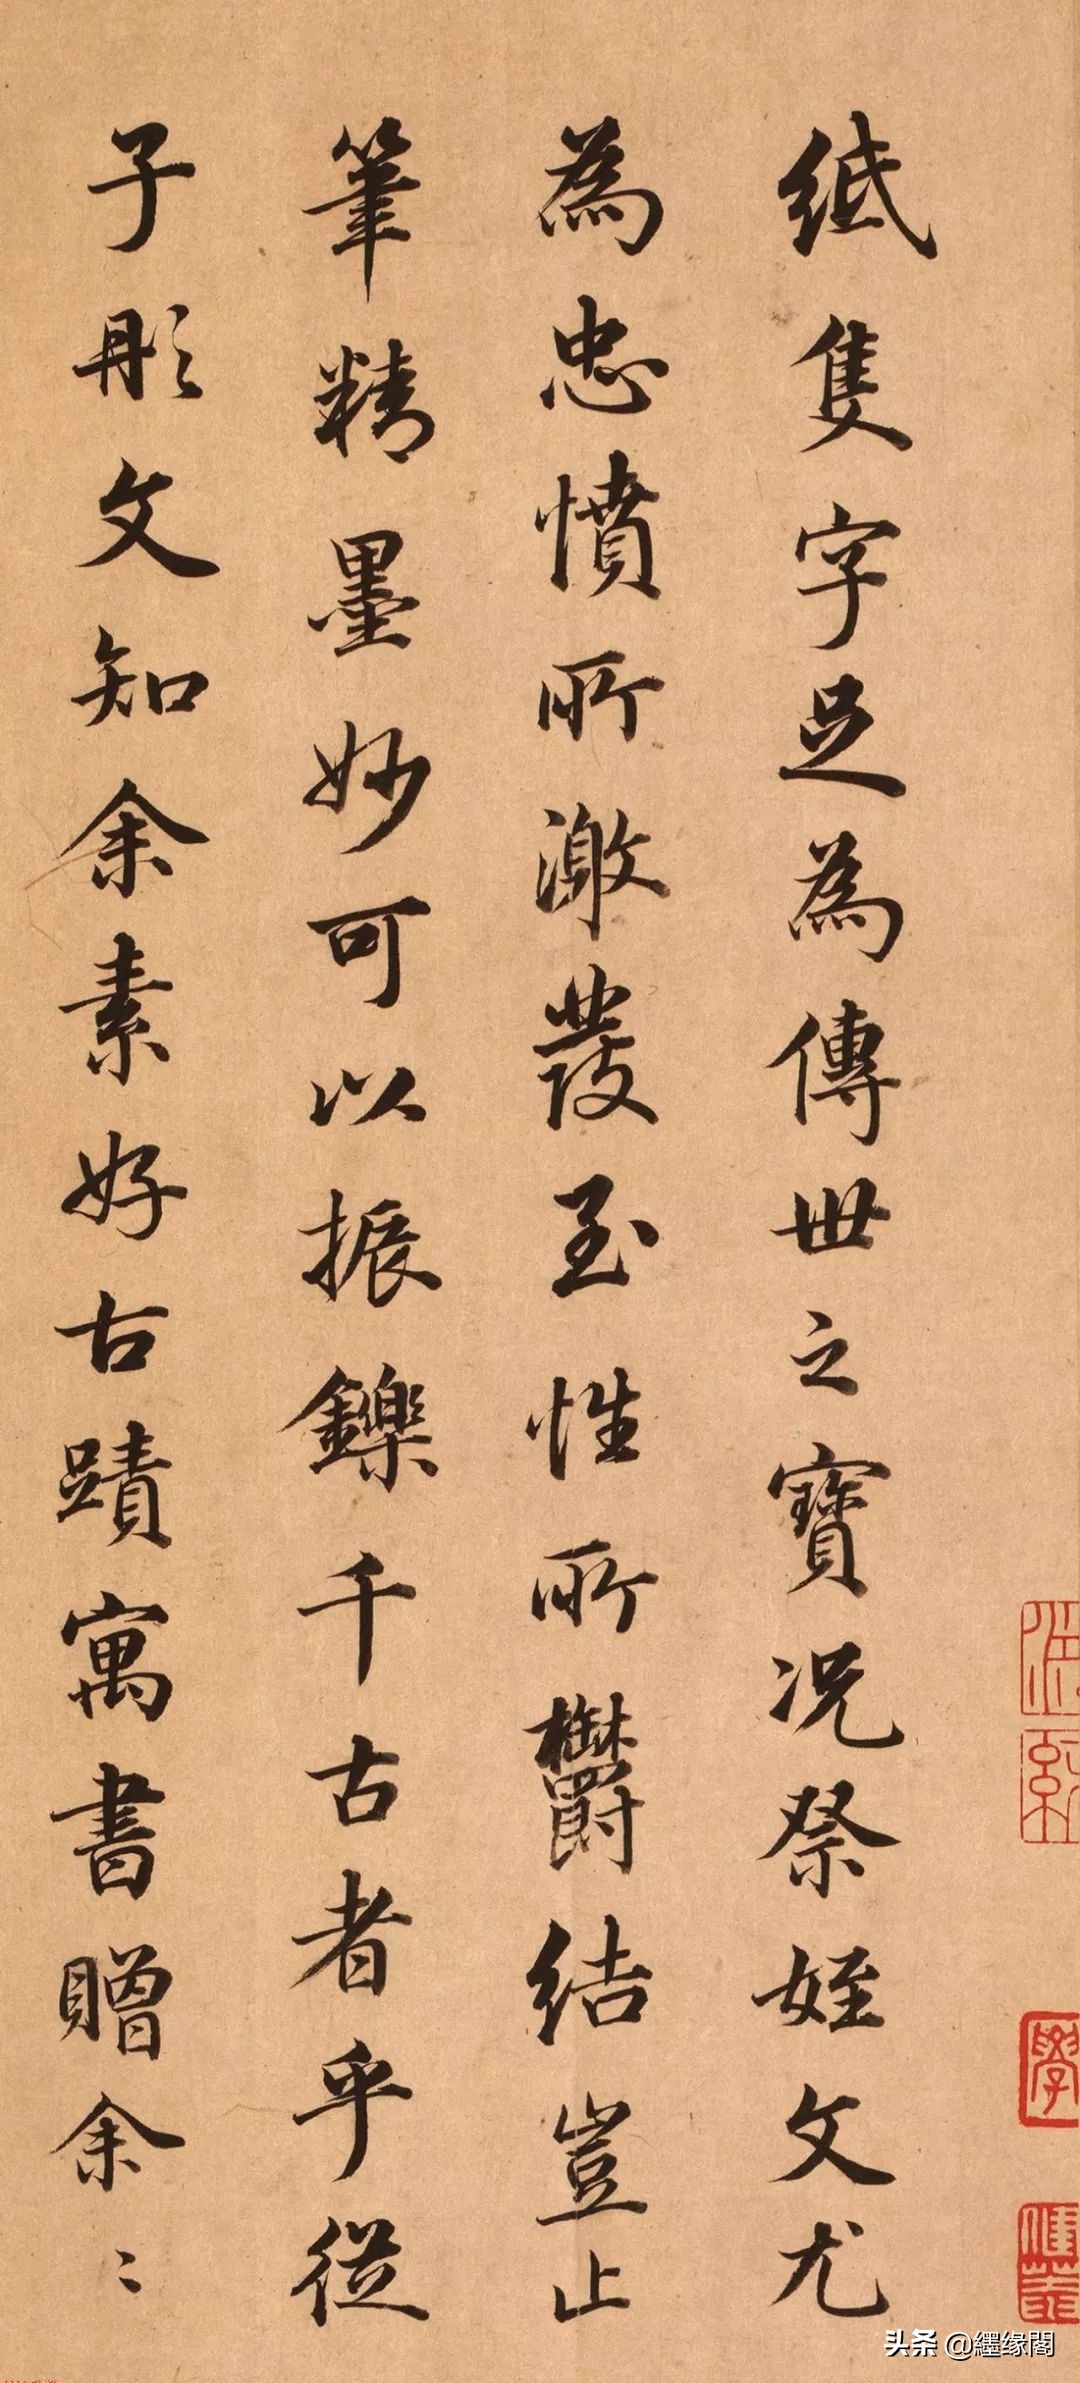 紙隻字足為傳世之寶况祭姪文尤
為忠憤所激發至性所欝結豈止
筆精墨妙可以振鑠千古者乎從
子彤文知余素好古蹟寓書贈余〻
頭条 @繧缘閣